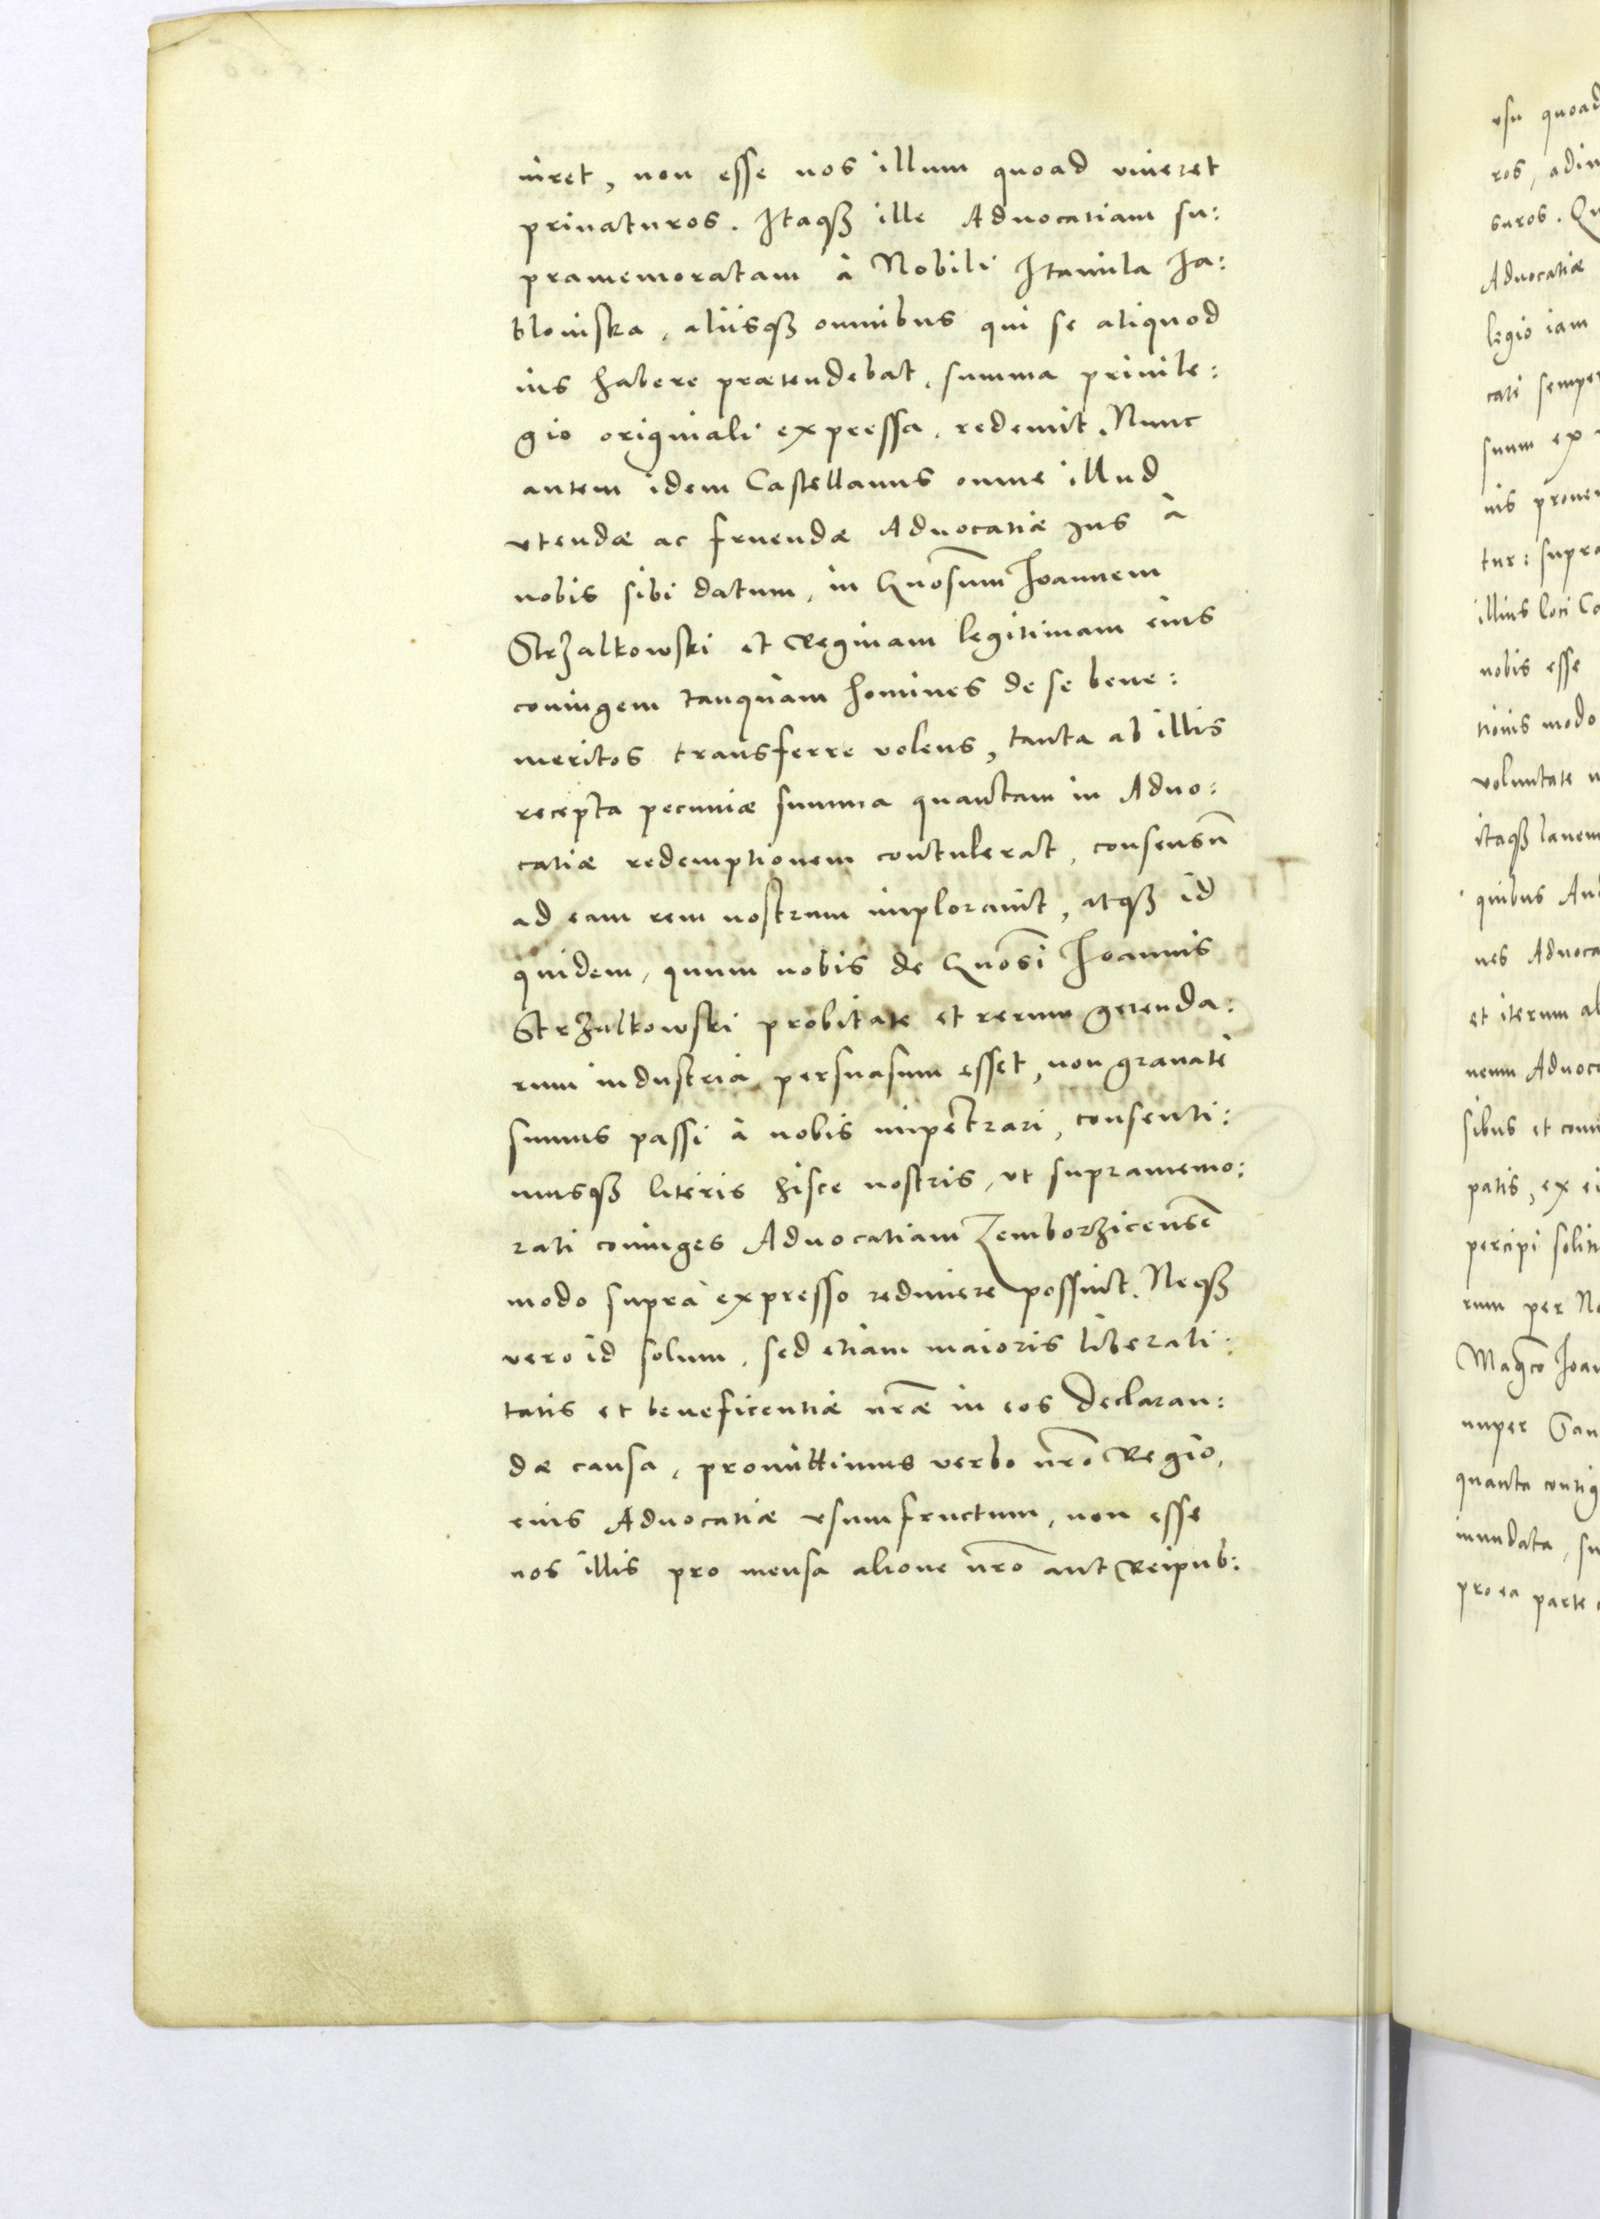 niret, non esse nos illum quoad viueret
priuaturos. Itaqꝫ ille Aduocatiam su:
pramemoratam à Nobili Itamila Ia:
bloniska, aliisqꝫ omnibus qui se aliquod
ius habere praetendebat, summa priuile:
gio originali expressa, redemit. Nunc
autem idem Castellanus omne illud
vtendæ ac fruendæ Aduocatiæ ius à
nobis sibi datum, in Gnosum Ioannem
Strzalkowski et Reginam legitimam eius
coniugem tanquam homines de se bene:
meritos transferre volens, tanta ab illis
recepta pecuniæ summa quantam in Aduo:
catiæ redemptionem contulerat, consensū
ad eam rem nostrum implorauit, atqꝫ id
quidem, quum nobis de Gnosi Ioannis
Strzalkowski probitate et rerum gerenda:
rum industria persuasum esset, non grauatè
sumus passi à nobis impetrari, consenti:
musqꝫ literis hisce nostris, vt supramemo:
rati coniuges Aduocatiam Zemborzicensē
modo suprà expresso redimere possint. Neqꝫ
vero id solum, sed etiam maioris liberali:
tatis et beneficentiæ nræ in eos declaran:
dæ causa, promittimus verbo nro Regio,
eius Aduocatiæ vsumfructum, non esse
nos illis pro mensa alioue nro aut Reipub:
vsu quoad
ros, adim
suros.
Aduocatiæ
legio iam
cati semper
suum ex
nis prouen
tur: supra
illius loci Ca
nobis esse
tionis modo
voluntate
itaqꝫ
quibus
nes Aduoca
et iterum al
neum Aduoc
sibus et
patis, ex ei
percipi soliti
rum per No
Magco Ioan
nuper
quanta contig
mundata, su
pro ea parte